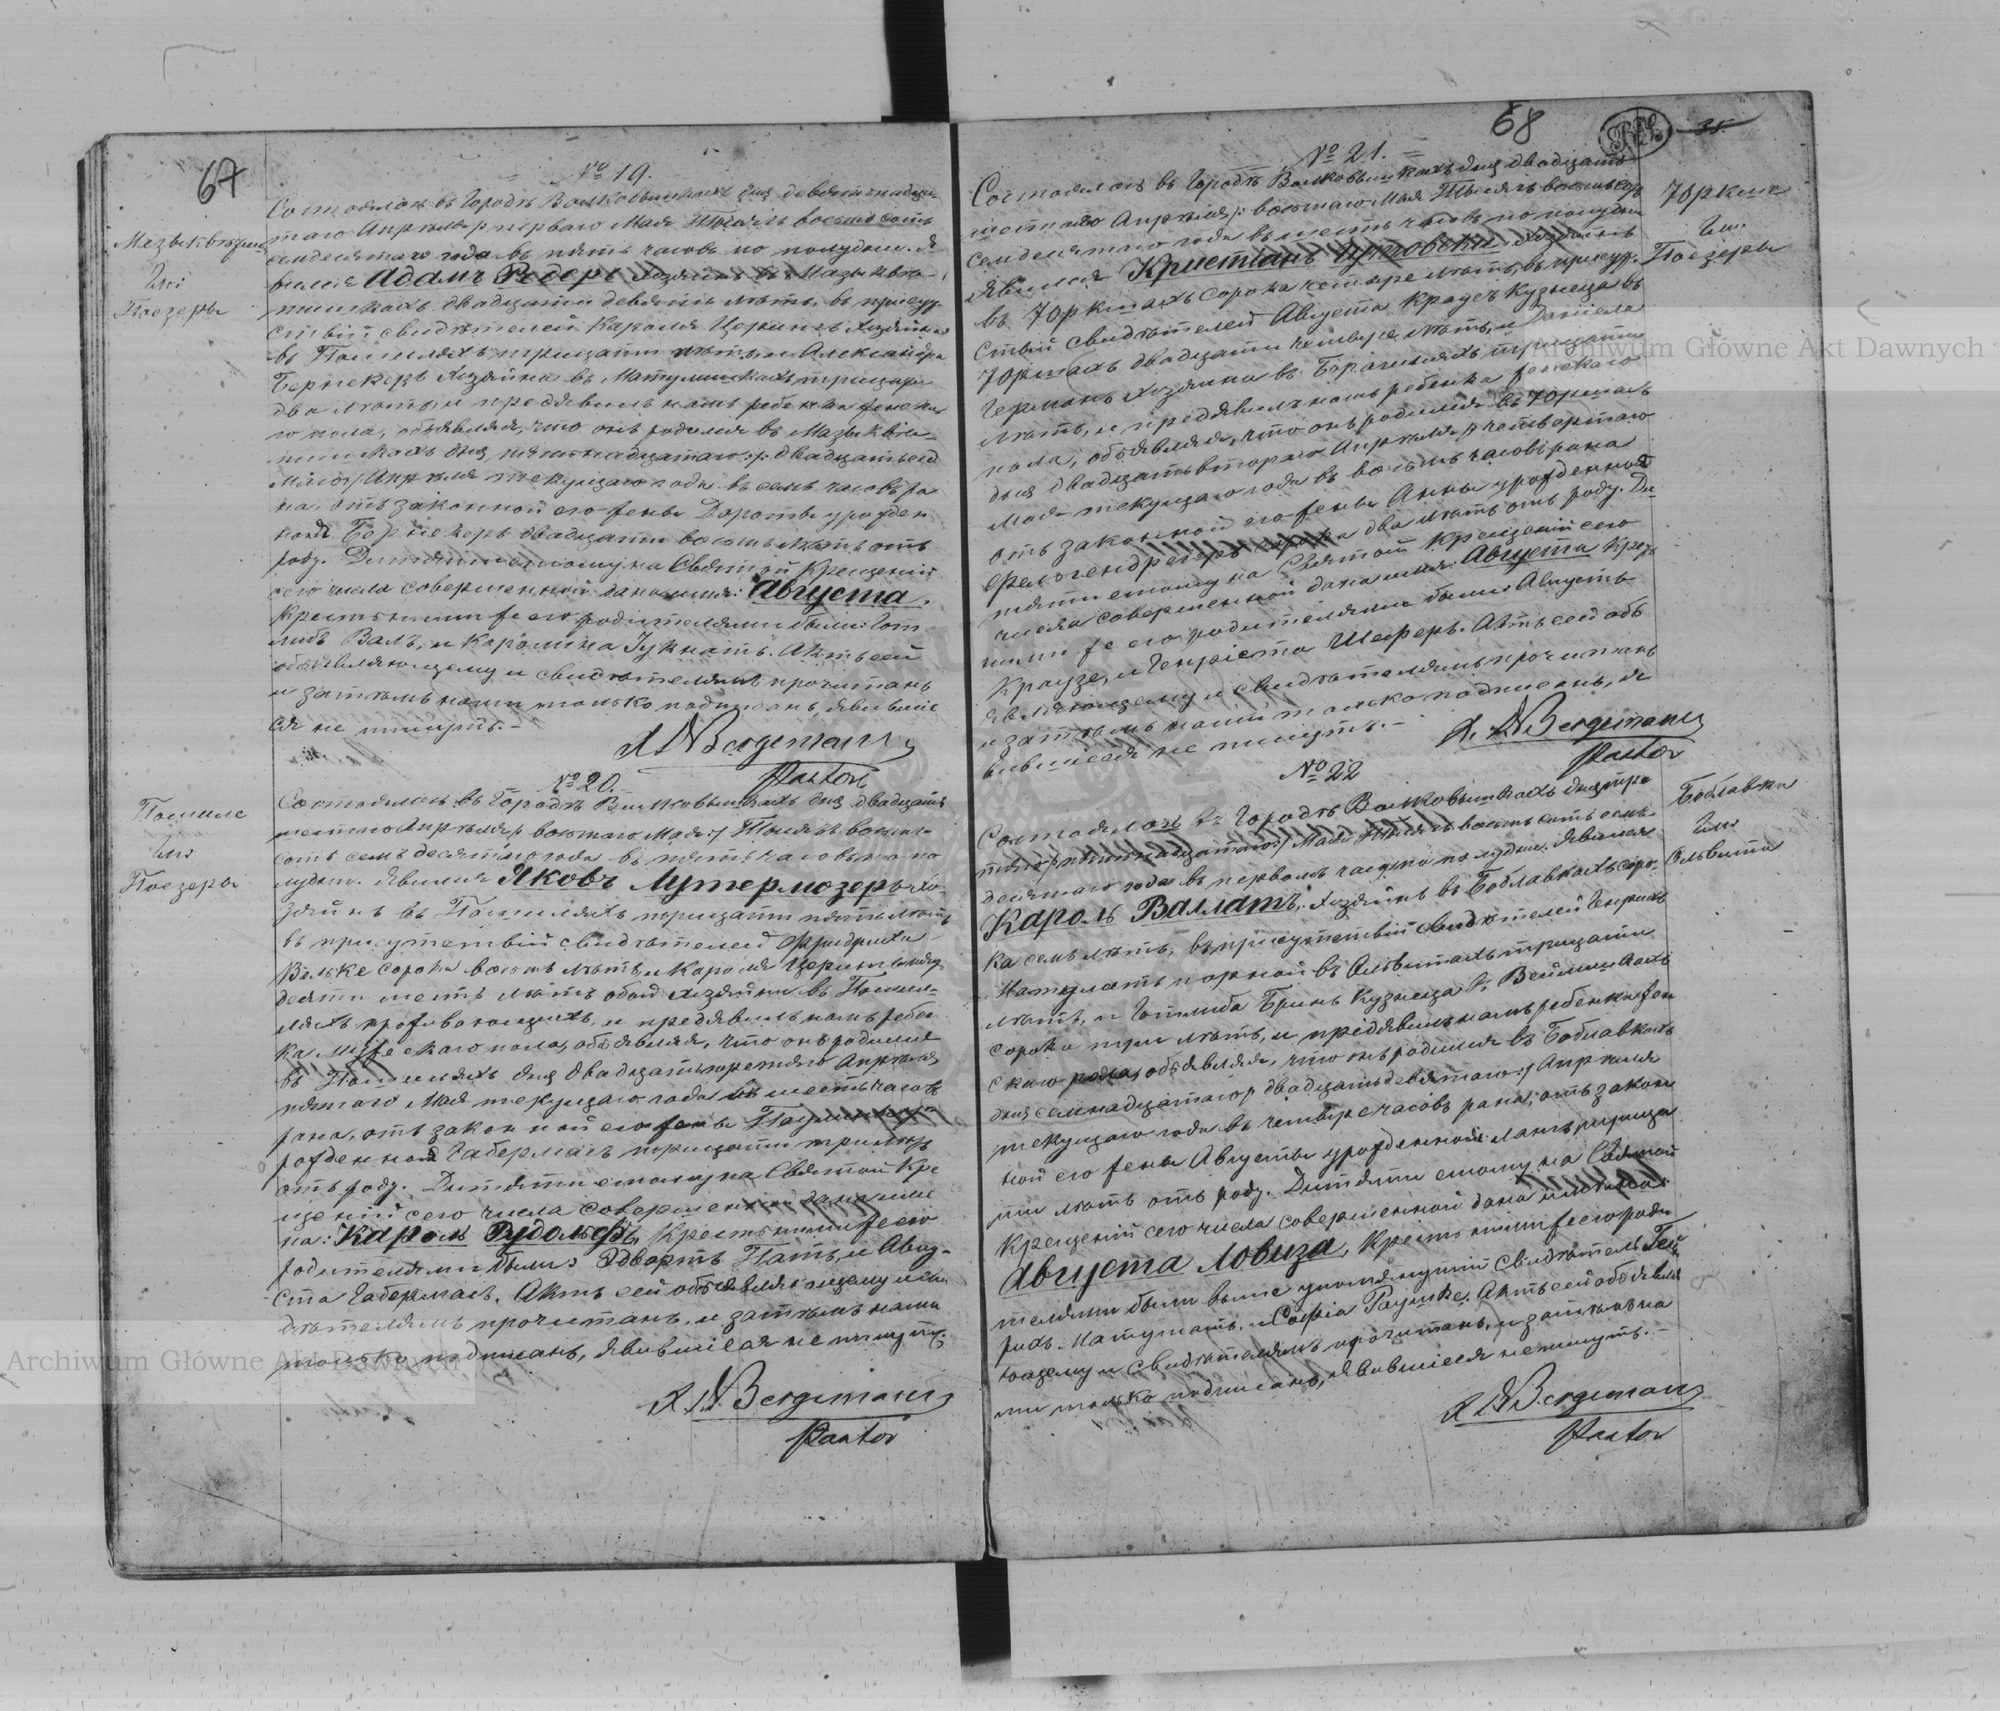 67
№ 19.
Мазыквтришки
Гм:
Поезеры
Состоялось въ Городѣ Волковышкахъ дня девятнадца-
таго Апрѣля /: перваго Мая Тысяча восемь сотъ
семдесятаго года въ пять часовъ по полудни. Я
вился Адамъ Редеръ Хозяинъ въ Мазыквт-
ришкахъ двадцати девяти лѣтъ, въ присут
ствіи свидѣтелей Кароля Церинъ Хозяина
въ Пошиляхъ тридцати лѣтъ, и Александра
Бернекеръ Хозяина въ Матулишкахъ тридцати
два лѣтъ, и предъявилъ намъ ребенка женска
го пола, объявляя, что онъ родился въ Мазыквт-
ришкахъ дня пятнадцатаго /: двадцать сед
маго / Апрѣля текущаго года въ семь часовъ ра
на, отъ законной его жены Дороты урожден
ной Бернекеръ двадцати восемь лѣтъ отъ
роду. Дитяти этому на Святой Крещеніи
сего числа совершенной дано имя: Августа,
Крестными же его родителями были: Гот
либъ Валъ, и Каролина Гукнатъ. Актъ сей
объявляющему и свидѣтелямъ прочитанъ
и затѣмъ нами только подписанъ, явившіе
ся не пишутъ. –
Bergemann
Pastor
№ 20.
Пошиле
Гм:
Поезеры
Состоялось въ Городѣ Волковышкахъ дня двадцать
шестаго Апрѣля /: восмаго Мая :/ Тысяча восемь
сотъ семьдесятаго года въ пять часовъ по по
лудни. Явился Яковъ Лутермозеръ Хо-
зяинъ въ Пошиляхъ тридцати пять лѣтъ
въ присутствіи свидѣтелей Фридриха
Вельке сорока восемь лѣтъ, и Кароля Церинъ пят
десяти шесть лѣтъ обои Хозяйни въ Поши-
ляхъ проживающихъ, и предъявилъ намъ ребен
ка мужескаго пола, объявляя, что онъ родился
въ Пошиляхъ дня двадцать третяго Апрѣля,
пятаго Мая текущаго года въ шесть часовъ
рана, отъ законной его жены
рожденной Габерманъ тридцати три лѣтъ
отъ роду. Дитяти этому на Святой Кре
щеніи сего числа совершенной дано име
на: Кароль Рудольфъ, Крестными же его
родителями были: Эдвартъ Натъ, и Авгу-
ста Габерманъ. Актъ сей объявляющему и сви
дѣтелямъ прочитанъ, и затѣмъ нами
только подписанъ, явившіеся не пишутъ.
Bergemann
Pastor
68
35
№ 21.
Юркше
Гм:
Поезеры
Состоялось въ Городѣ Волковышкахъ дня двадцать
шестаго Апрѣля /: восмаго Мая Тысяча восемь сотъ
семдесятаго года въ шесть часовъ по полудни
явился Христіанъ Хозяинъ
въ Юркшахъ сорока четыре лѣтъ, въ присут-
ствіи свидѣтелей Августа Краузъ Кузнеца въ
Юркшахъ двадцати четыре лѣтъ, и Даніеля
Германъ Хозяина въ тридцати
лѣтъ, и предъявилъ намъ ребенка женскаго
пола, объявляя, что онъ родился въ Юркшахъ
дня двадцать втораго Апрѣля /: четвертаго
Мая текущаго года въ восемь часовъ рана
отъ законной его жены Анны урожденной
сорока два лѣтъ отъ роду. Ди-
тяти этому на Святой Крещеніи сего
числа совершенной дано имя: Августа Крест
ными же его родителями были: Августъ
Краузе, и Генріета Шеферъ. Актъ сей объ
являющему и свидѣтелямъ прочитанъ
и затѣмъ нами только подписанъ, я
вившіеся не пишутъ. –
Bergemann
Pastor
№ 22
Боблавки
Гм:
Ольвита
Состоялось въ Городѣ Волковышкахъ дня тре
тяго /: пятнадцатаго :/ Мая Тысяча восемь сотъ семь
десятаго года въ первомъ часу по полудни. Явился
Кароль Валлатъ, Хозяинъ въ Боблавкахъ соро-
ка семь лѣтъ, въ присутствіи свидѣтелей Генриха
Матулатъ въ Ольвитахъ тридцати
лѣтъ, и Готлиба Бринъ Кузнеца въ
сорока три лѣтъ, и предъявилъ намъ ребенка жен
скаго рода, объявляя, что онъ родился въ Боблавкахъ
дня семнадцатаго /: двадцать девятаго :/ Апрѣля
текущаго года въ четыре часовъ рана, отъ закон
ной его жены Августы урожденной Лангъ тридца
ти лѣтъ отъ роду. Дитяти этому на Святой
Крещеніи сего числа совершенной дана имена:
Августа Ловиза, Крестными же его роди
телями были выше упомянутый свидѣтель Ген
рихъ Матулатъ, и Софіа Раушке. Актъ сей объявля
ющему и свидѣтелямъ прочитанъ, и затѣмъ на
ми только подписано, явившіеся не пишутъ. –
Bergemann
Pastor
Archiwum Główne Akt Dawnych
Archiwum Główne Akt Dawnych